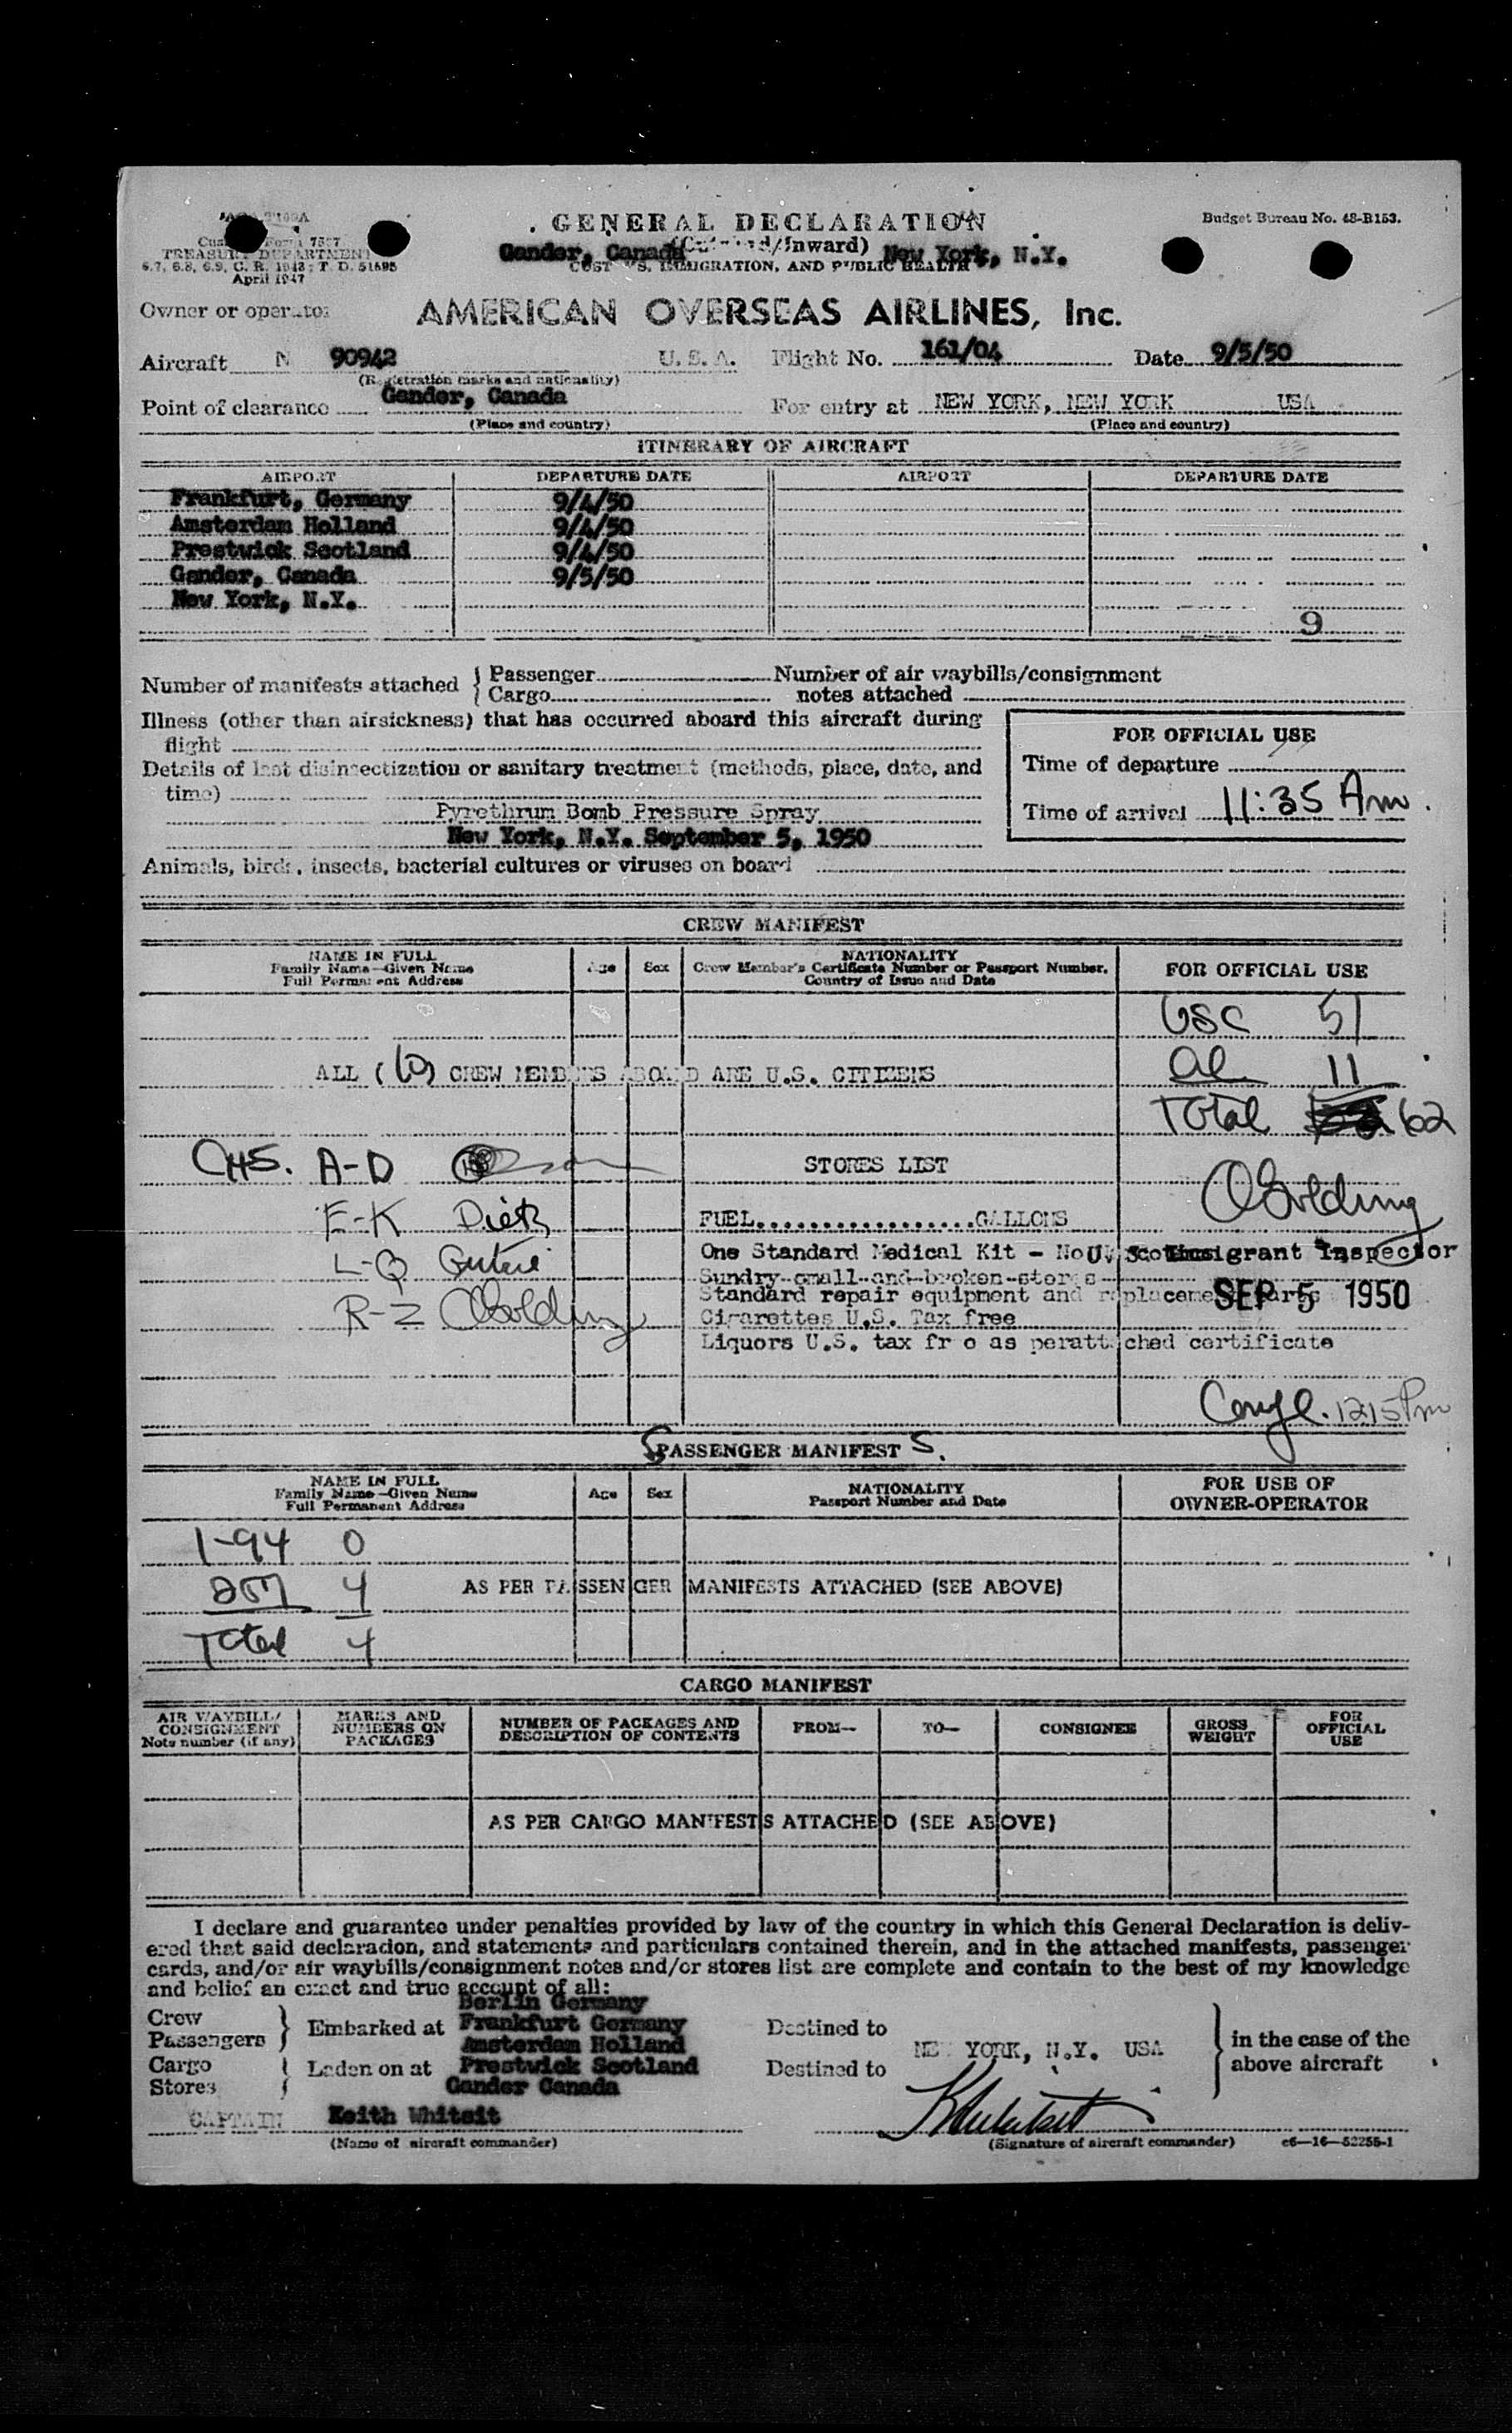 GENERAL DECLARATION
Budget Bureau No. 48-B153.
Customs Form 7507
TREASURY DEPARTMENT
6.7, 6.8, 6.9, C. R. 1943; T. D. 51595
April 1947
(Outward/Inward)
Gander, Canada New York, N.Y.
CUSTOMS, IMMIGRATION, AND PUBLIC HEALTH
Owner or operator AMERICAN OVERSEAS AIRLINES, Inc.
Aircraft N 90942 U.S.A. Flight No. 161/04 Date 9/5/50
(Registration marks and nationality)
Point of clearance Gander, Canada For entry at NEW YORK, NEW YORK USA
(Place and country) (Place and country)
ITINERARY OF AIRCRAFT
AIRPORT DEPARTURE DATE AIRPORT DEPARTURE DATE
Frankfurt, Germany 9/4/50
Amsterdam Holland 9/4/50
Prestwick Scotland 9/4/50
Gander, Canada 9/5/50
New York, N.Y.
9
Number of manifests attached { Passenger Number of air waybills/consignment
Cargo notes attached
Illness (other than airsickness) that has occurred aboard this aircraft during
flight
Details of last disinsectization or sanitary treatment (methods, place, date, and
time)
Pyrethrum Bomb Pressure Spray
New York, N.Y. September 5, 1950
FOR OFFICIAL USE
Time of departure
Time of arrival 11:35 Am.
Animals, birds, insects, bacterial cultures or viruses on board
CREW MANIFEST
NAME IN FULL
Family Name—Given Name
Full Permanent Address
Age Sex
NATIONALITY
Crew Member's Certificate Number or Passport Number,
Country of Issue and Date
FOR OFFICIAL USE
USC 51
ALL (10) CREW MEMBERS ABOARD ARE U.S. CITIZENS
al 11
Total 62
CHS. A-D
STORES LIST
E-K Dietz
FUEL..................GALLONS
L-Q Guthrie
One Standard Medical Kit - No
U. S. Immigrant Inspector
Sundry small and broken stores
Standard repair equipment and replacement parts
SEP 5 1950
R-Z OGolding
OGolding
Cigarettes U.S. Tax free
Liquors U.S. tax fr e as perattached certificate
Compl. 1215 Pm
PASSENGER MANIFEST S.
NAME IN FULL
Family Name—Given Name
Full Permanent Address
Age Sex
NATIONALITY
Passport Number and Date
FOR USE OF
OWNER-OPERATOR
1-94 0
4
AS PER PASSENGER MANIFESTS ATTACHED (SEE ABOVE)
Total 4
CARGO MANIFEST
AIR WAYBILL/
CONSIGNMENT
Note number (if any)
MARKS AND
NUMBERS ON
PACKAGES
NUMBER OF PACKAGES AND
DESCRIPTION OF CONTENTS
FROM— TO— CONSIGNEE
GROSS
WEIGHT
FOR
OFFICIAL
USE
AS PER CARGO MANIFESTS ATTACHED (SEE ABOVE)
I declare and guarantee under penalties provided by law of the country in which this General Declaration is deliv-
ered that said declaracion, and statements and particulars contained therein, and in the attached manifests, passenger
cards, and/or air waybills/consignment notes and/or stores list are complete and contain to the best of my knowledge
and belief an exact and true account of all:
Crew
Passengers } Embarked at
Cargo
Stores } Laden on at
Berlin Germany
Frankfurt Germany
Amsterdam Holland
Prestwick Scotland
Gander Canada
Destined to
Destined to
NEW YORK, N.Y. USA
in the case of the
above aircraft
CAPTAIN Keith Whitsit
KWhitsit
(Name of aircraft commander) (Signature of aircraft commander) c6—16—52255-1